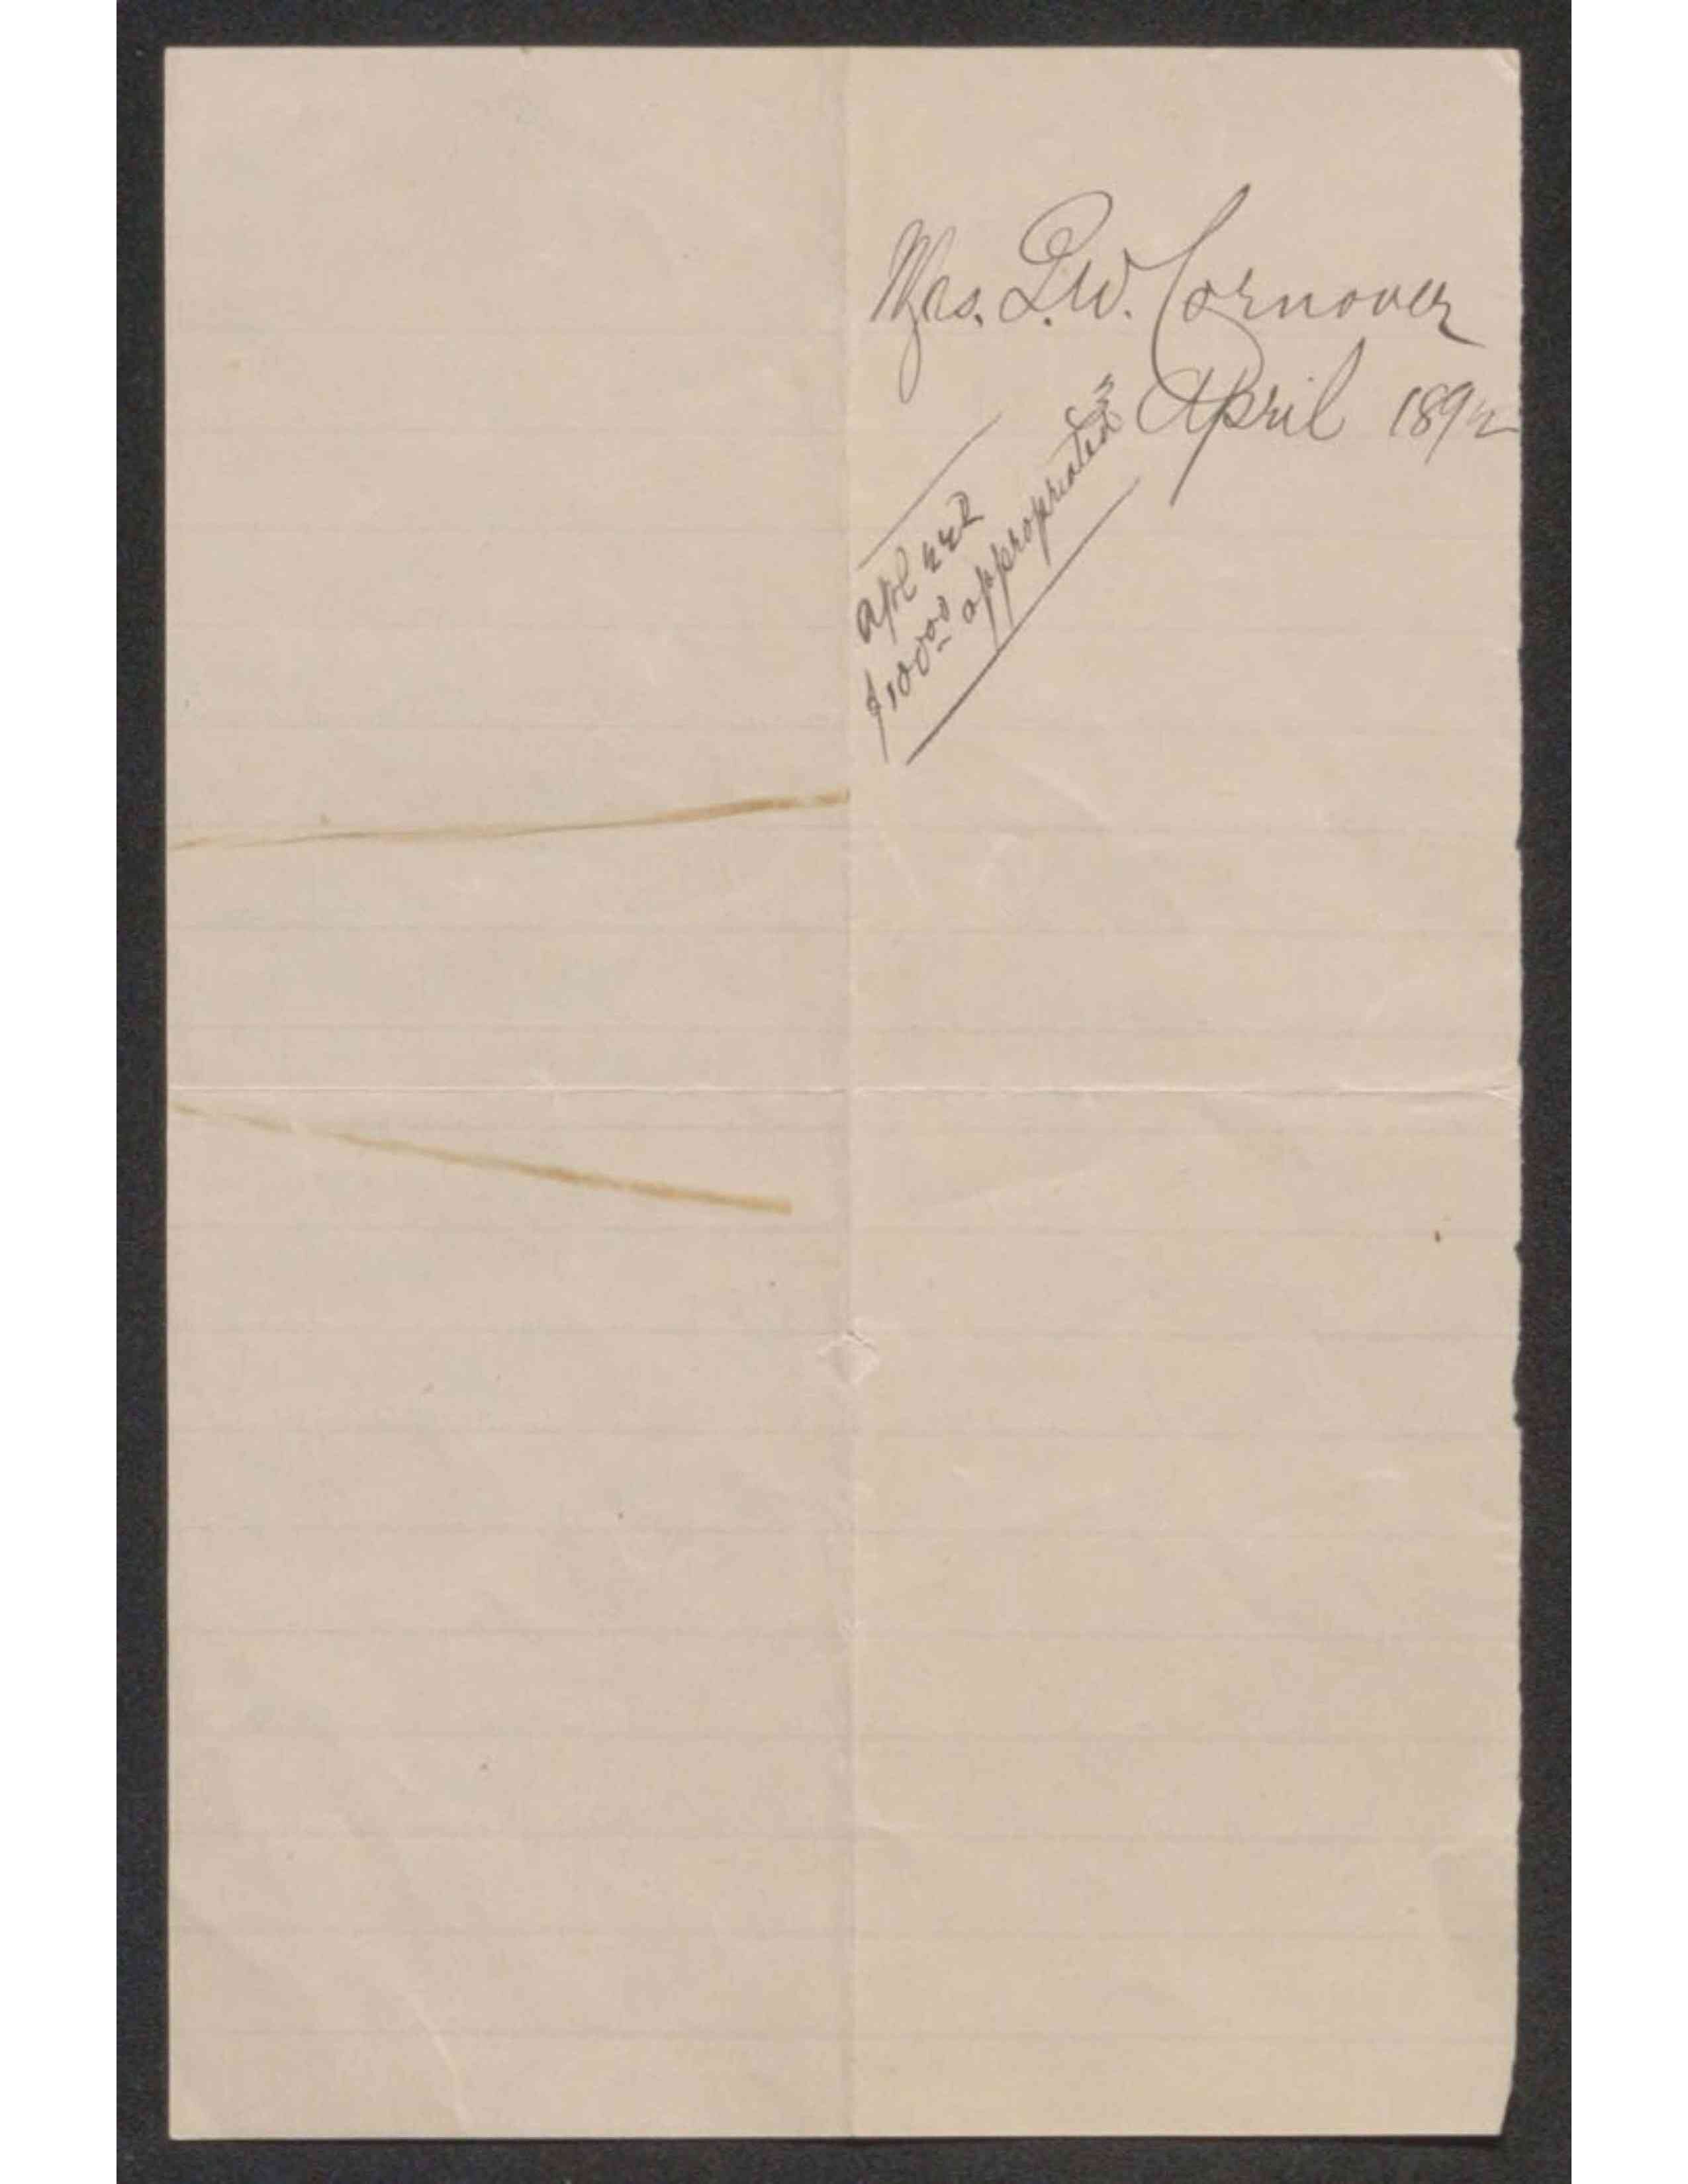 Mrs. L.W. Cornover
April 1892
Apl 22d
$100.00 appropriated